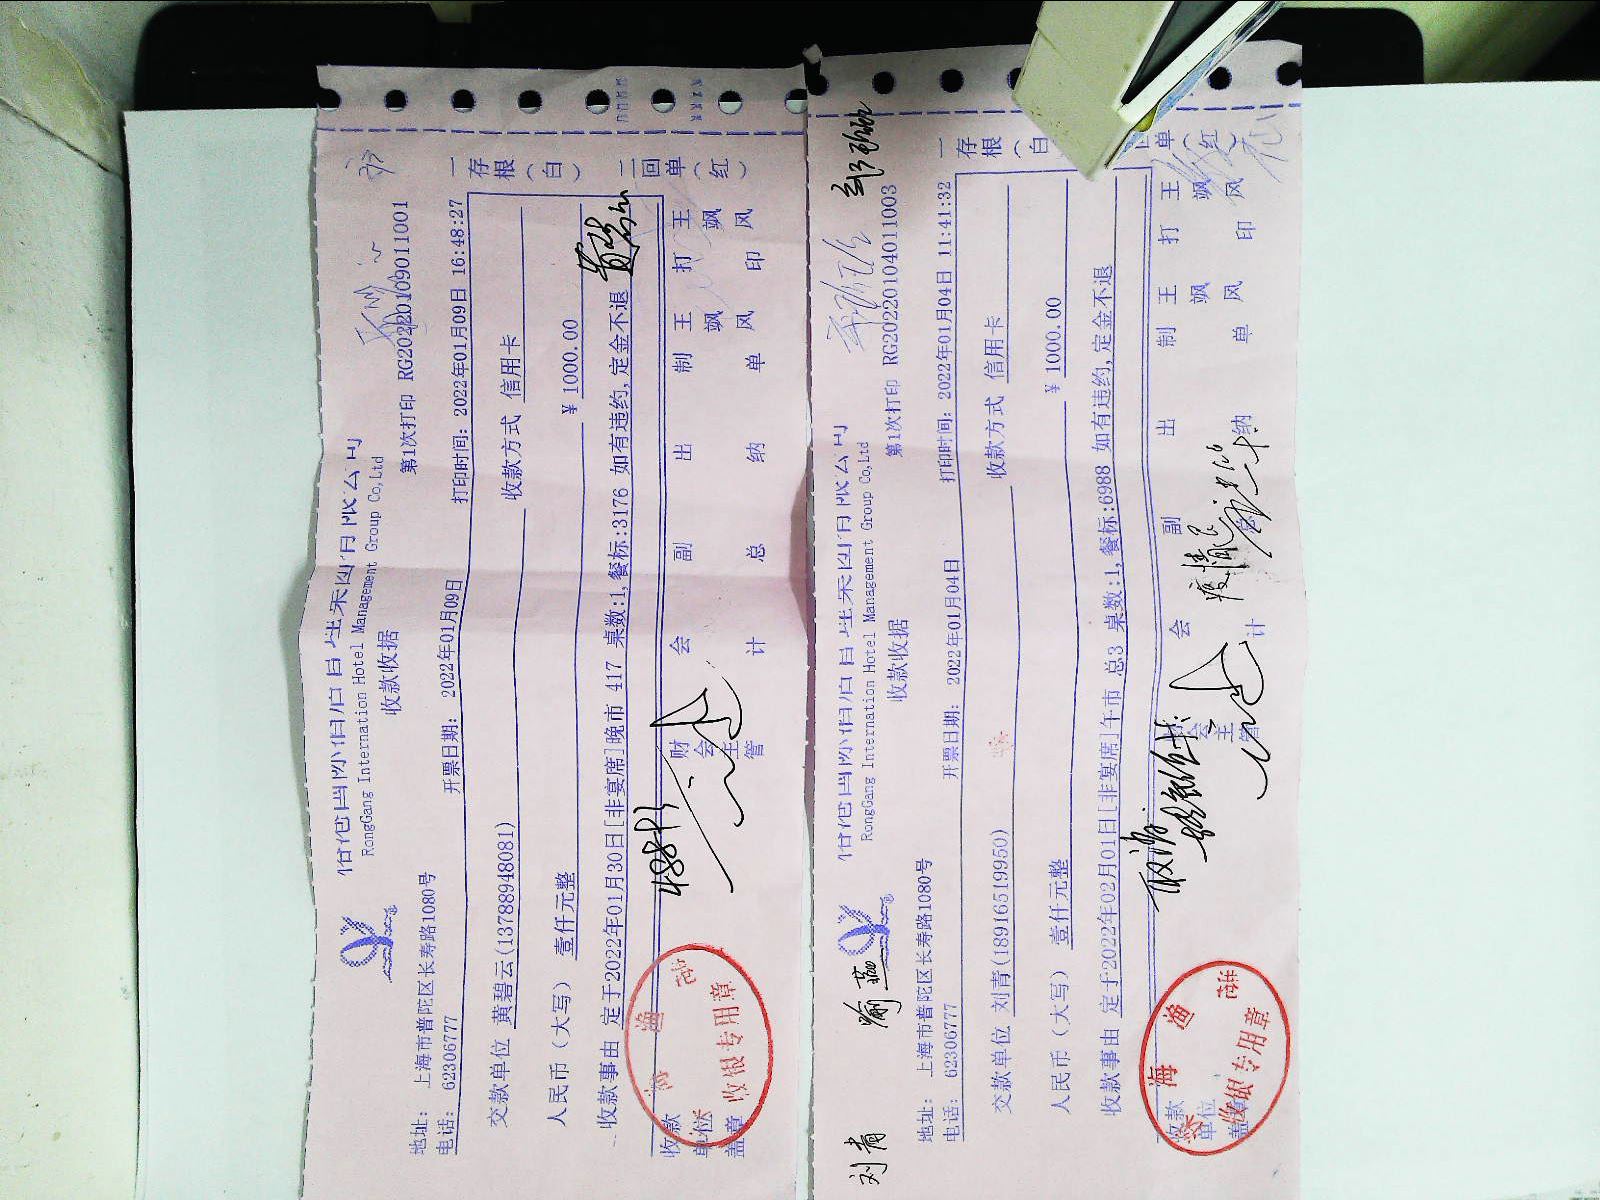 RongGang Internation Hotel Management Group Co,Ltd
收款收据
第1次打印 RG20220109011001
地址: 上海市普陀区长寿路1080号
电话: 62306777
开票日期: 2022年01月09日
打印时间: 2022年01月09日 16:48:27
交款单位 黄碧云(13788948081)
收款方式 信用卡
人民币（大写） 壹仟元整
¥ 1000.00
收款事由 定于2022年01月30日[非宴席]晚市 417 桌数:1,餐标:3176 如有违约,定金不退
收款单位盖章
财会主管
会计
副总
出纳
制单 王飒风
打印 王飒风
一存根（白）
二回单（红）
收银专用章
RongGang Internation Hotel Management Group Co,Ltd
收款收据
第1次打印 RG20220104011003
地址: 上海市普陀区长寿路1080号
电话: 62306777
开票日期: 2022年01月04日
打印时间: 2022年01月04日 11:41:32
交款单位 刘青(18916519950)
收款方式 信用卡
人民币（大写） 壹仟元整
¥ 1000.00
收款事由 定于2022年02月01日[非宴席]午市 总3 桌数:1,餐标:6988 如有违约,定金不退
收款单位盖章
会主管
会计
副总
出纳
制单 王飒风
打印 王飒风
一存根（白
回单（红）
专用章
刘青
喻燕
取消
疫情